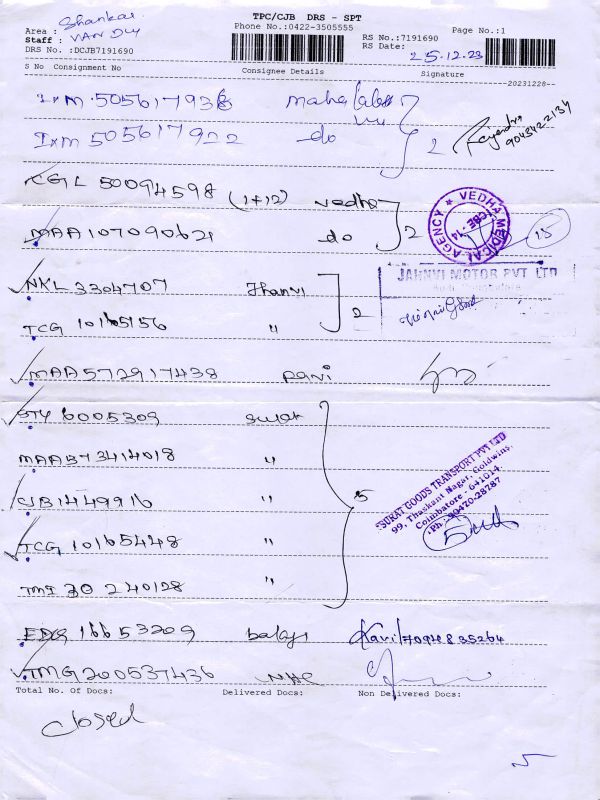 TPC/CJB DRS - SPT
Phone No.:0422-3505555
Area : Shankar
Staff : VAN DU
DRS No. :DCJB7191690
RS No.:7191690
RS Date: 25.12.23
Page No.:1
S No Consignment No Consignee Details Signature
20231228
IXM 505617938 Maha
IXM 505617922 do 2
9043422134
CGL 50094598 (1+12) vedha
MAA 107090621 do 2
VEDHA MEDICAL AGENCY CBE-14
15
NKL 3304707 Jhanvi
JAHNVI MOTOR PVT LTD
TCG 10165156 " 2
MAA 572917438 ravi
STY 6005309 surat
MAA 573414018 "
CJB 1449916 " 5
SURAT GOODS TRANSPORT PVT LTD
99, Thashant Nagar, Goldwins,
Coimbatore - 641014.
Ph: 90470-28787
TCG 10165448 "
TMI 30240128 "
EDG 16653209 balaji Kavi 7094835264
TMG 200537436
Total No. Of Docs: Delivered Docs: Non Delivered Docs:
closed